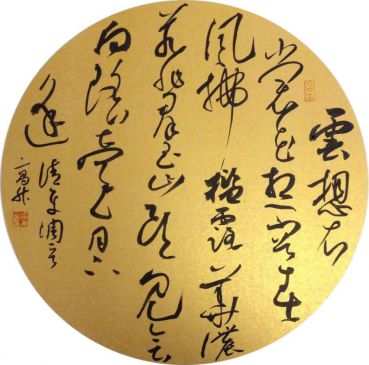 雲想衣
裳花想容春
風拂檻露華濃
若非群玉山頭見會
向瑤臺月下
逢 清平調